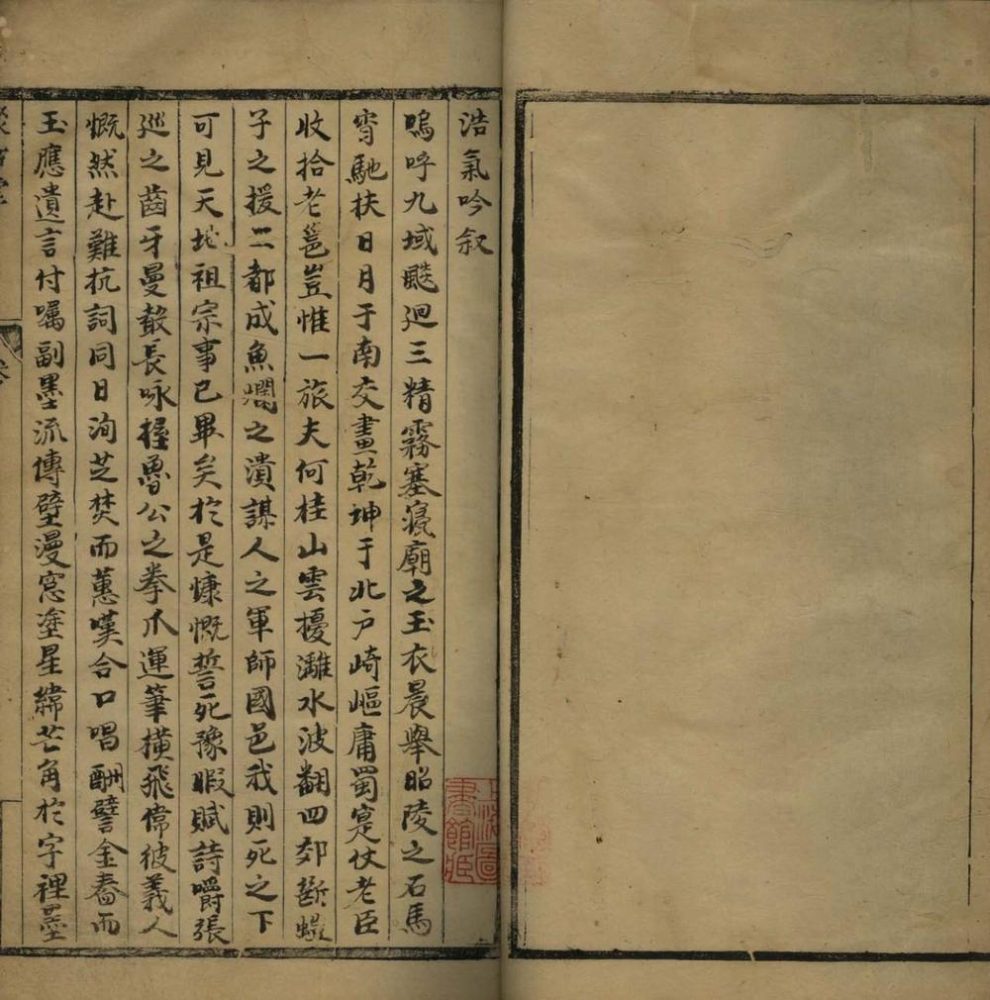 浩氣吟叙
嗚呼九域飈廻三精霧塞寢廟之玉衣晨舉昭陵之石馬
宵馳扶日月于南交畫乾坤于北户崎嶇庸蜀寔仗老臣
收拾老邕豈惟一旅夫何桂山雲擾灕水波翻四郊斷蟻
子之援二都成魚爛之潰謀人之軍師國邑我則死之下
可見天地祖宗事已畢矣於是慷慨誓死豫暇賦詩嚼張
巡之齒牙曼聲長咏握魯公之拳爪運筆橫飛偉彼義人
慨然赴難抗詞同日洵芝焚而蕙嘆合口唱酬譬金舂而
玉應遺言付囑副墨流傳壁漫窓塗星緯芒角於字裡墨
上海圖書館藏